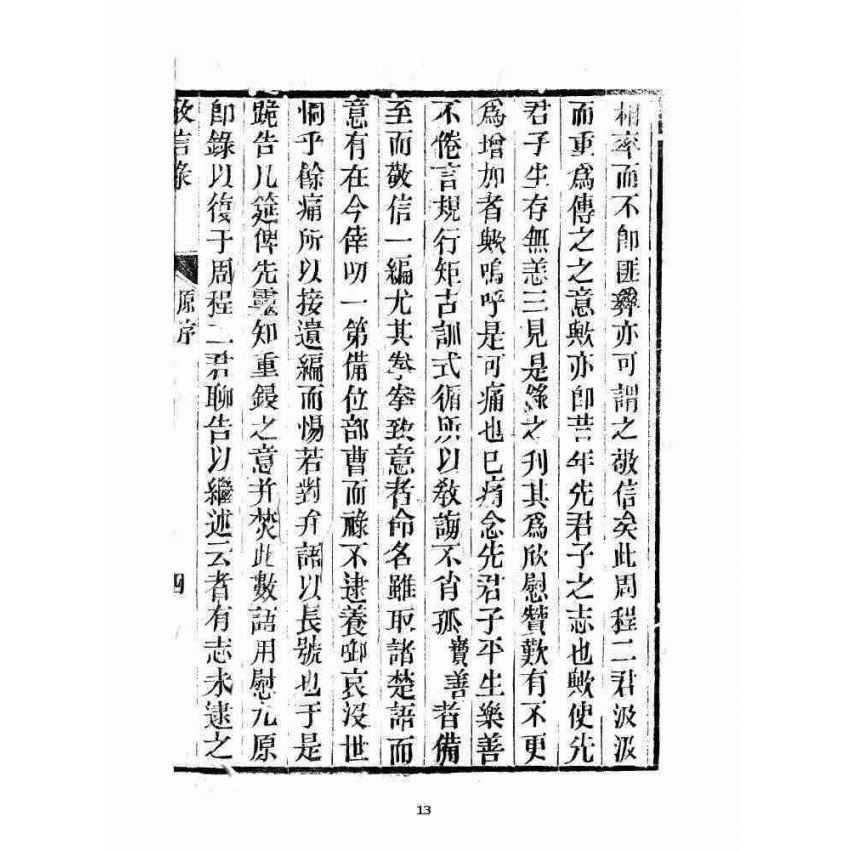 相率而不卽匪彝亦可謂之敬信矣此周程二君汲汲
而重爲傳之之意歟亦卽昔年先君子之志也歟使先
君子生存無恙三見是錄之刋其爲欣慰贊歎有不更
爲增加者歟嗚呼是可痛也已痛念先君子平生樂善
不倦言規行矩古訓式循所以敎誨不肖孤寶善者備
至而敬信一編尤其拳拳致意者命名雖取諸楚語而
意有在今倖叨一第備位部曹而祿不逮養啣哀沒世
恫乎餘痛所以接遺編而惕若對弁語以長號也于是
跪告几筵俾先靈知重鋟之意并焚此數語用慰九原
卽錄以復于周程二君聊告以繼述云者有志未逮之
敬信錄
原序
四
13